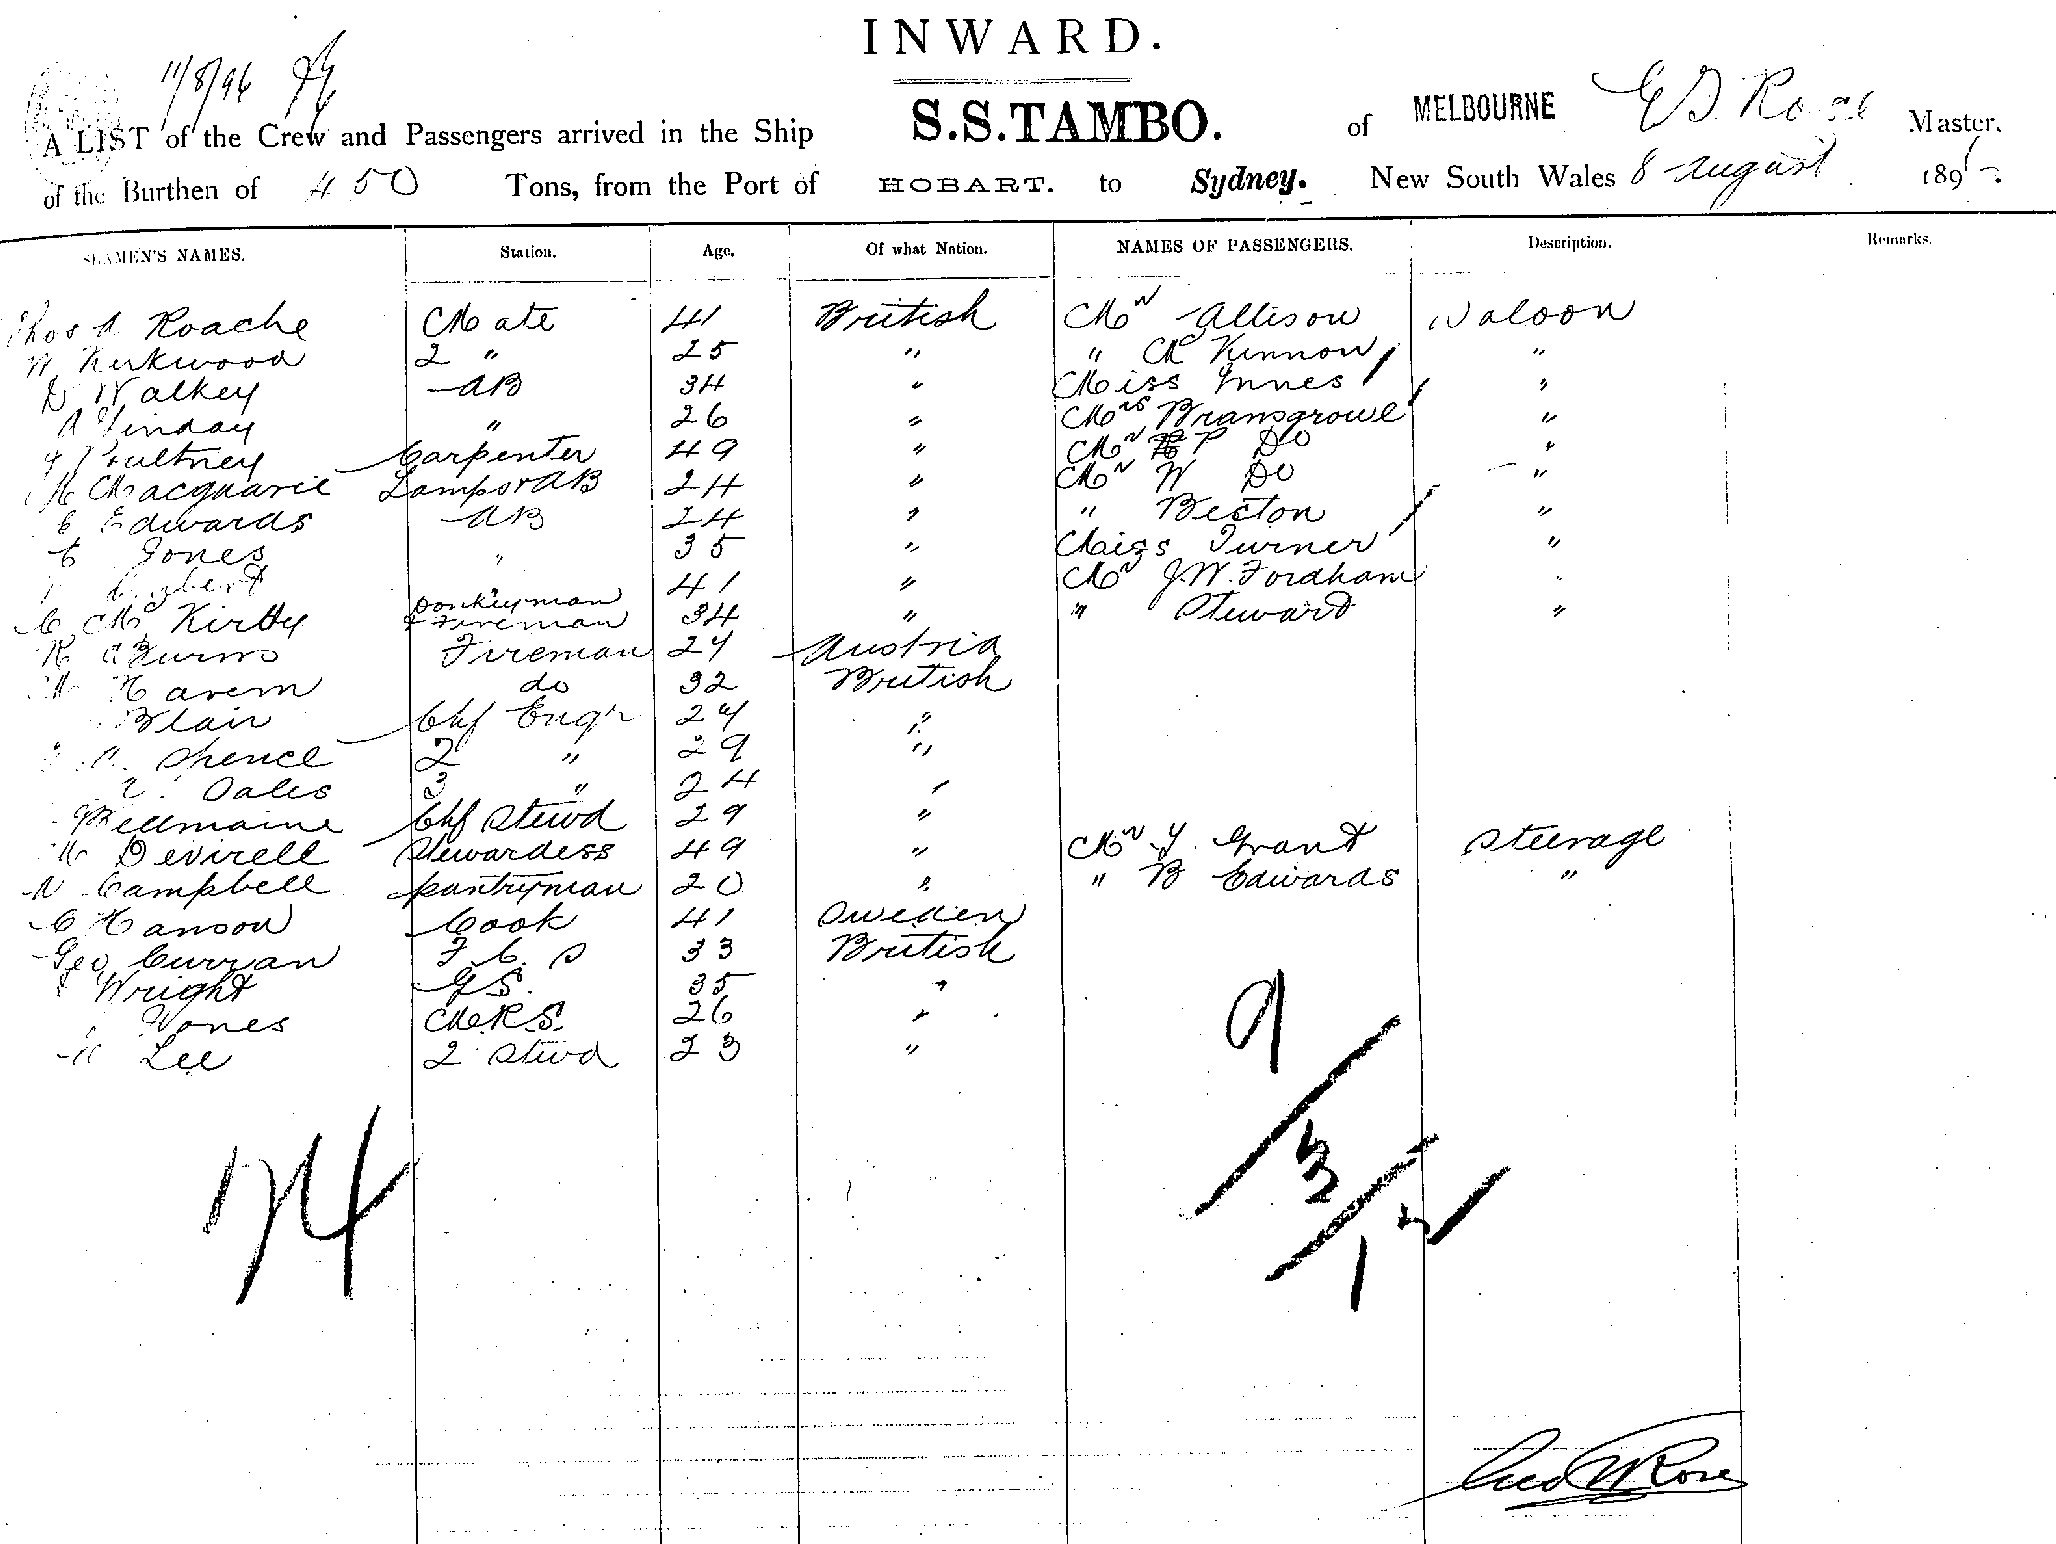 INWARD.
11/8/96
A LIST of the Crew and Passengers arrived in the Ship S.S. TAMBO. of MELBOURNE Master.
of the Burthen of 450 Tons, from the Port of HOBART. to Sydney. New South Wales 8 August 189
SEAMEN'S NAMES. Station. Age. Of what Nation. NAMES OF PASSENGERS. Description. Remarks.
Thos A Roache Mate 41 British Mr Allison Saloon
W Kirkwood 2 " 25 " " McKinnon "
D Walkey AB 34 " Miss Innes "
A " 26 " Mrs Bransgrove "
Poultney Carpenter 49 " Mr P Do "
M Macquarie Lamps & AB 24 " Mr W Do "
C Edwards AB 24 " " Becton "
C Jones " 35 " Miss Turner "
41 " Mr J.W. Fordham
C Mc Kirdy Donkeyman & Fireman 34 " " Steward "
R Fireman 24 Austria
M Havern do 32 British
Blair Chf Engr 24 "
Spence 2 " 29 "
Oales 3 " 24 "
Bellmaine Chf Stewd 29 "
M Devirell Stewardess 49 " Mr Y. Grant Steerage
N Campbell pantryman 20 " " B Edwards "
C Hanson Cook 41 Sweden
Geo Curran F.C.S 33 British
Wright G.S. 35 "
Vones M.R.S. 26 "
H Lee 2 Stewd 23 "
9
3
12